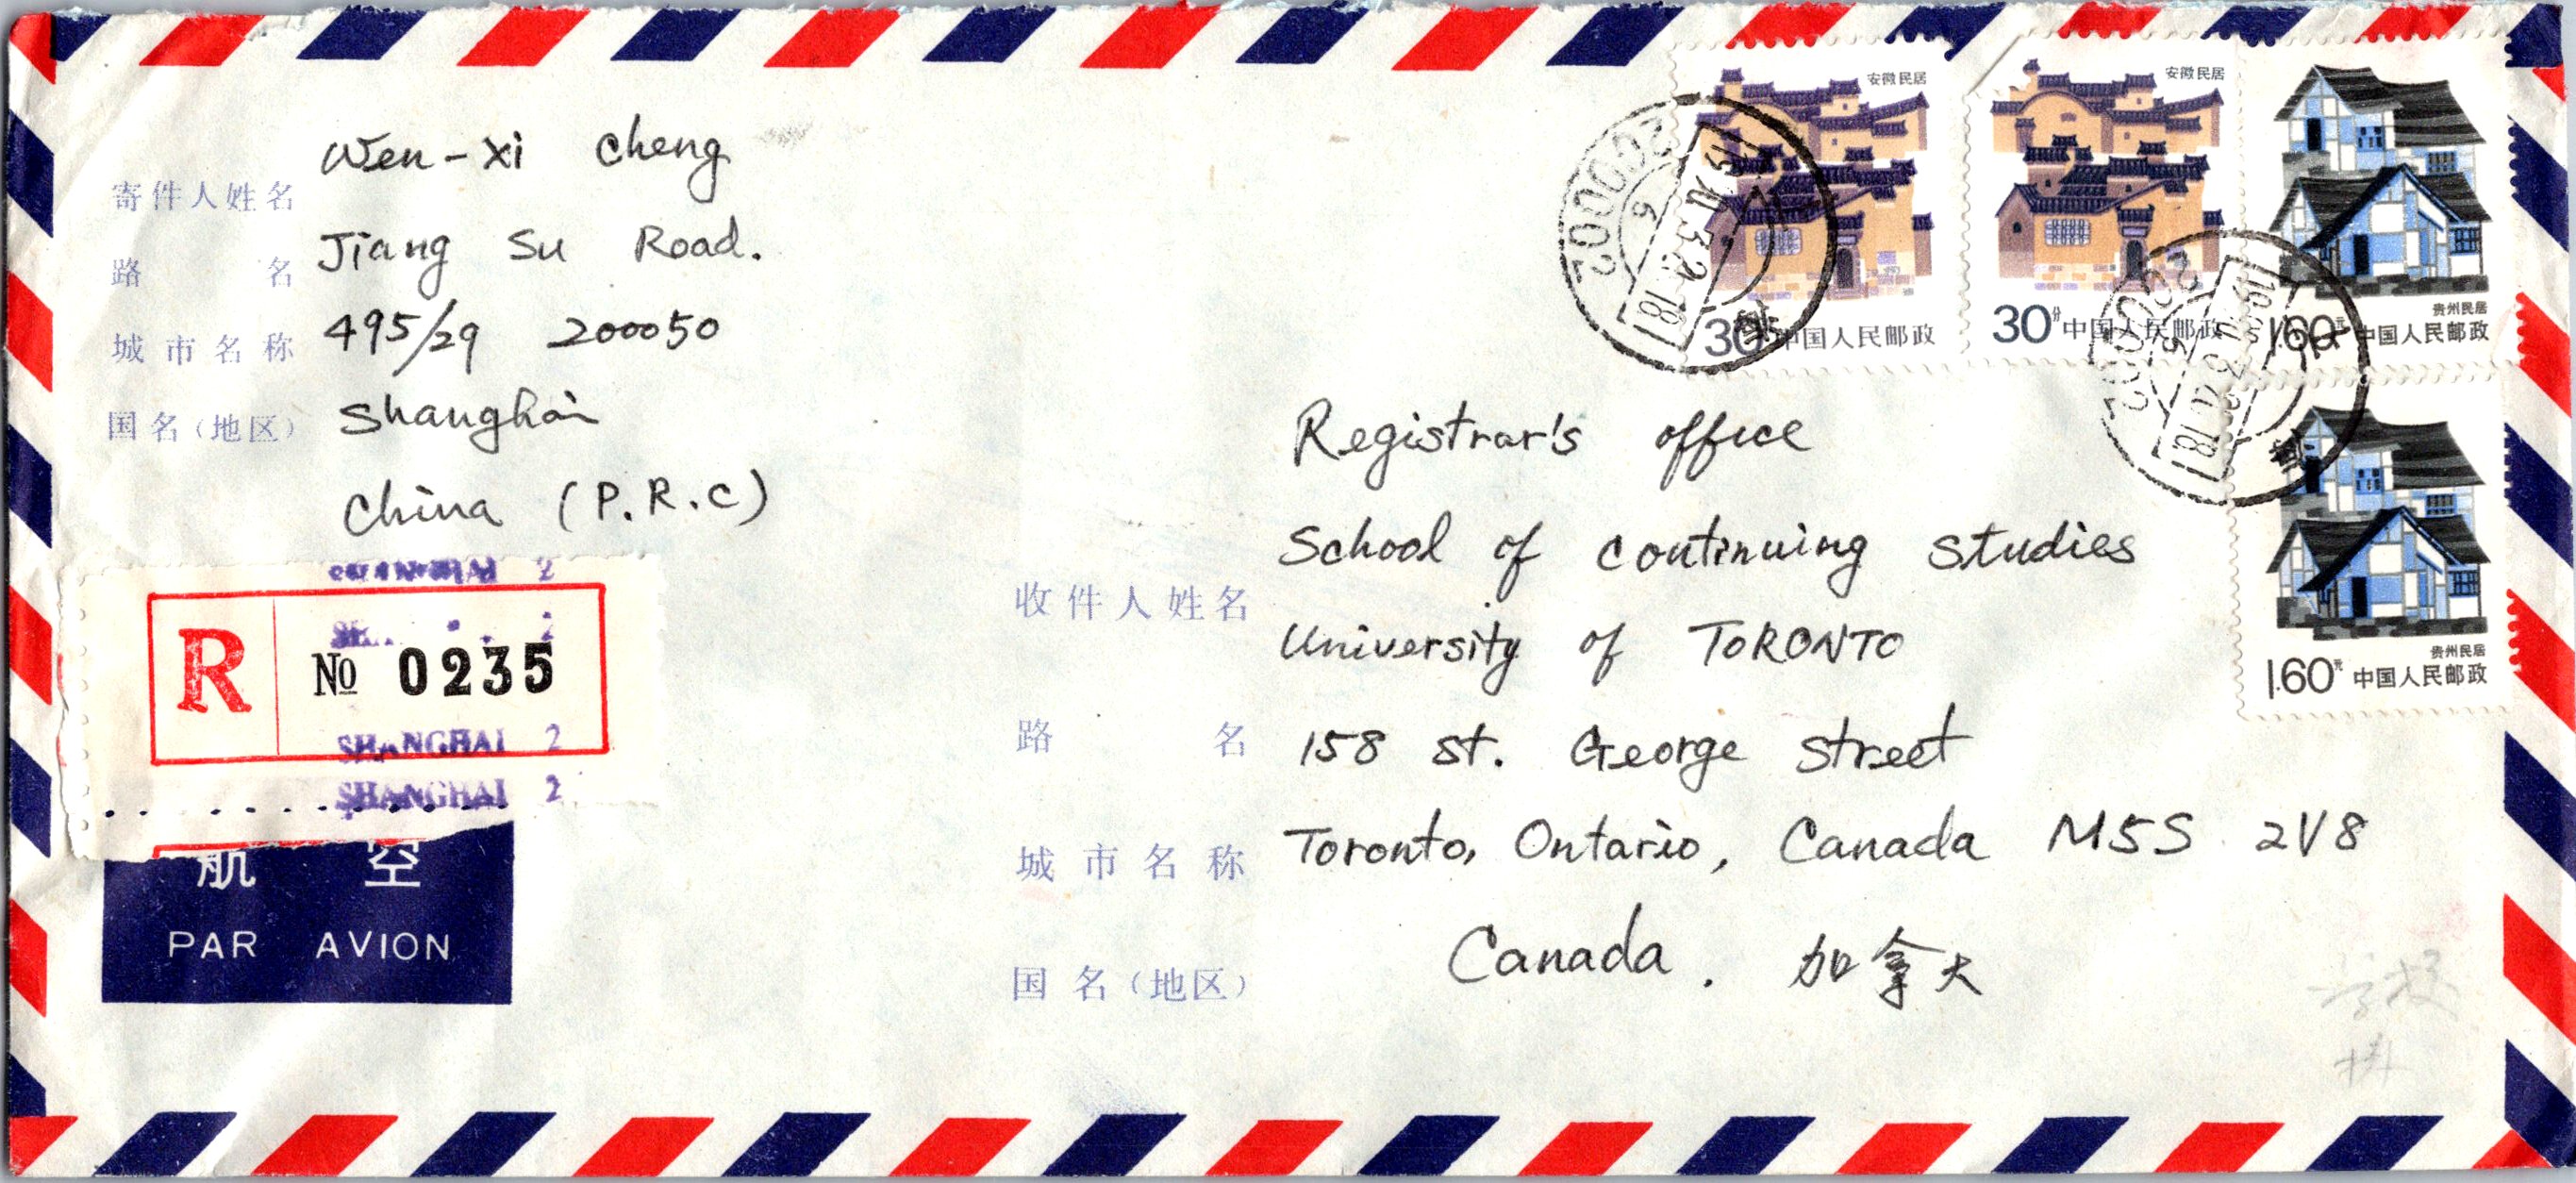 Wen-Xi Cheng
寄件人姓名
Jiang Su Road.
路 名
495/29 200050
城市名称
Shanghai
国名(地区)
China (P.R.C)
SHANGHAI 2
R
№ 0235
SHANGHAI 2
SHANGHAI 2
航 空
PAR AVION
安徽民居
30分 中国人民邮政
安徽民居
30分 中国人民邮政
贵州民居
1.60元 中国人民邮政
贵州民居
1.60元 中国人民邮政
200002
200002
Registrar's office
School of Continuing Studies
收件人姓名
University of TORONTO
路 名
158 St. George Street
城市名称
Toronto, Ontario, Canada M5S 2V8
Canada. 加拿大
国名(地区)